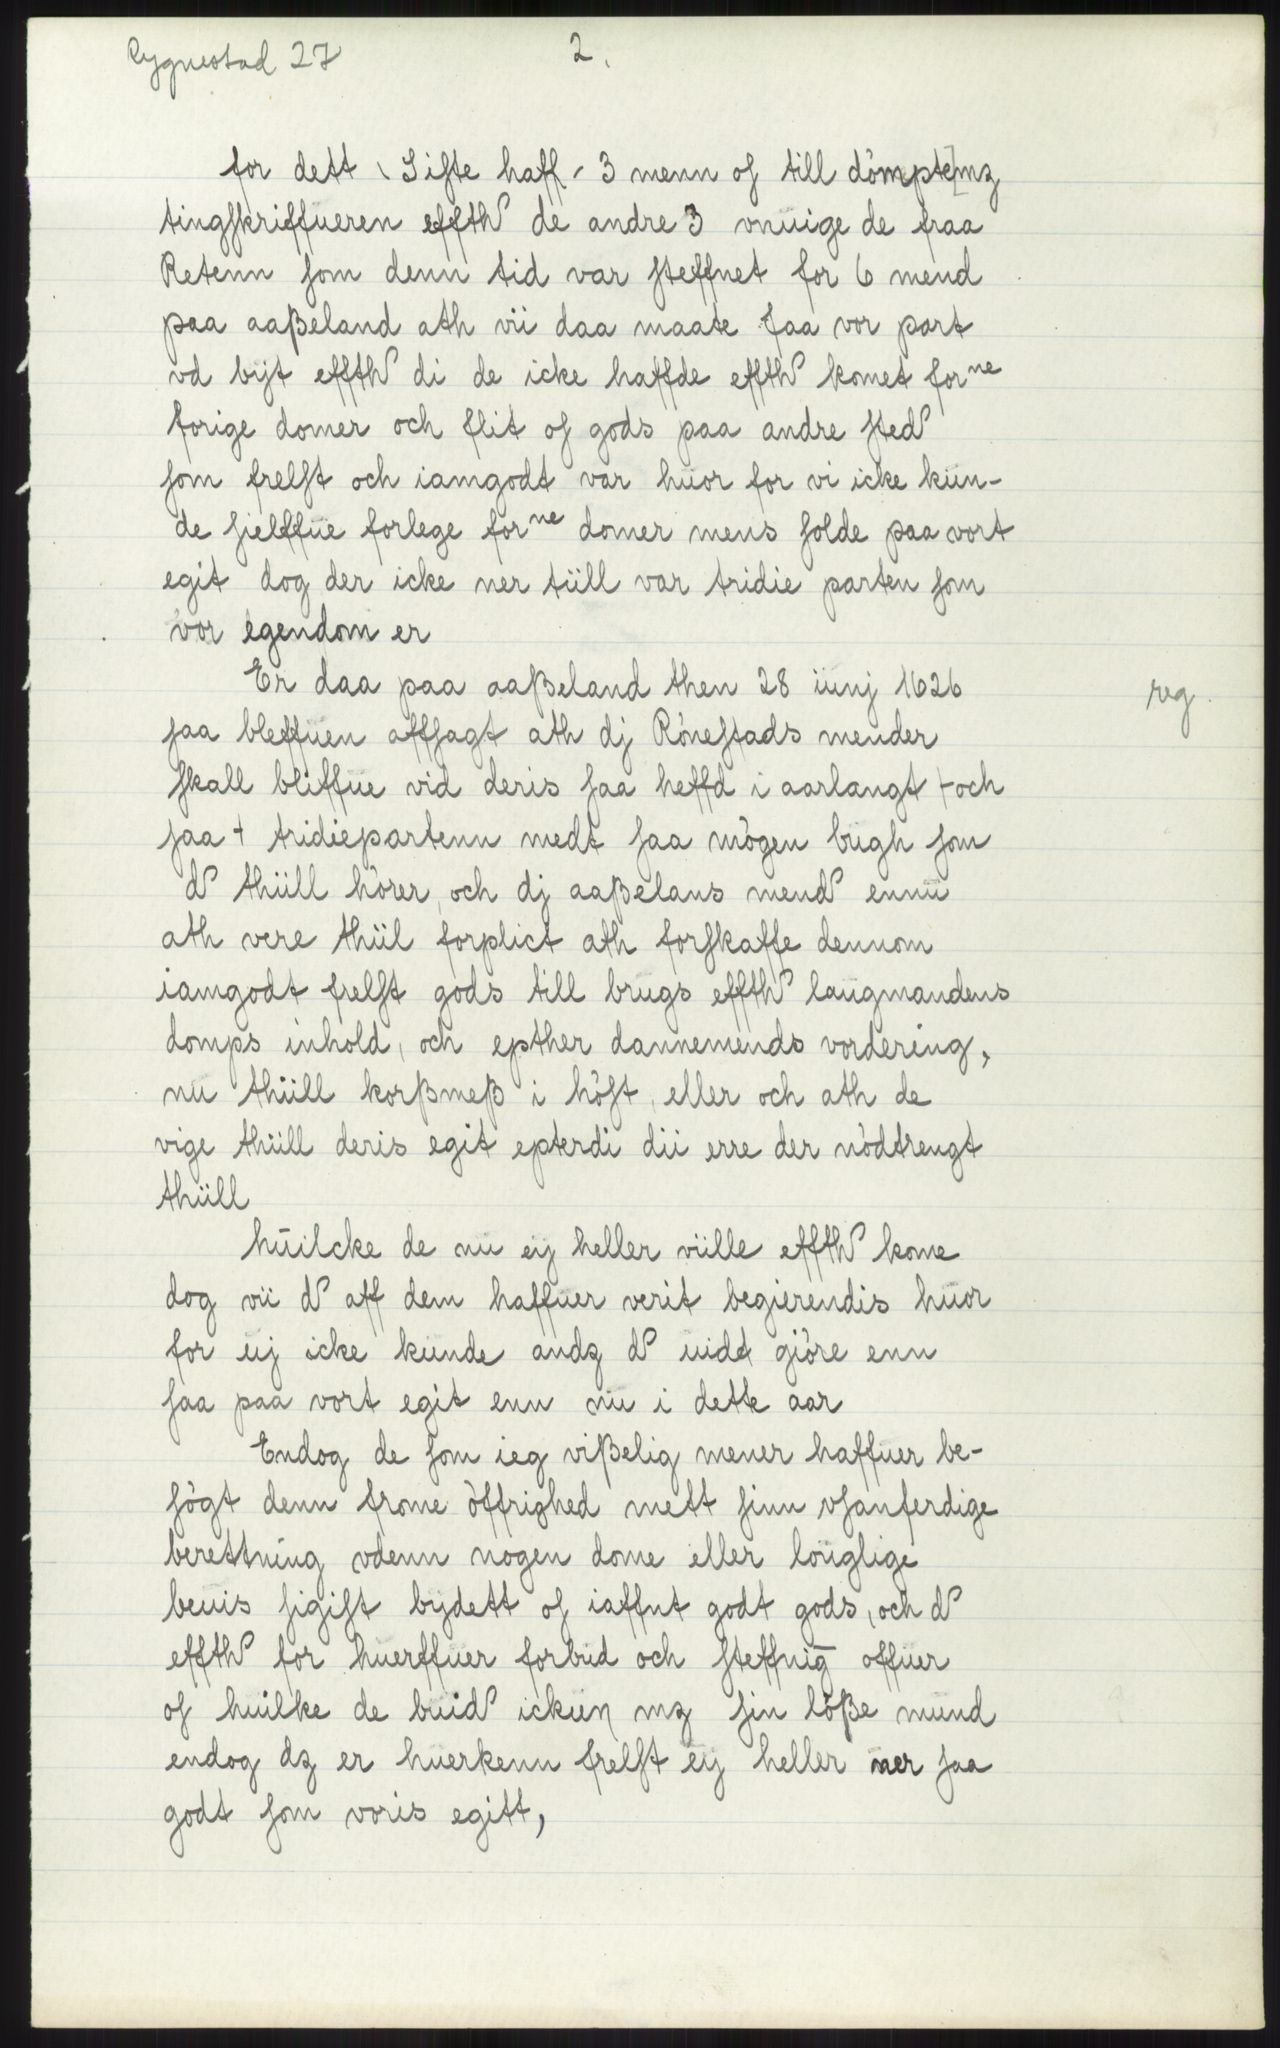 Rygnestad 27
2.
for dett \ Siste haff - 3 menn os till dómpte[mz
tingskriffueren effth de andre 3 vnuige de fraa
Retenn som denn tid var steffnet for 6 mend
paa aaßeland ath vii daa maate faa vor part
vd bÿt effth di de icke haffde effth komet forne
forige domer och flit os gods paa andre sted
som frelst och iamgodt var huor for vi icke kun-
de sielffue forlege forne domer mens solde paa vort
egit dog der icke ner tüll var tridie parten som
vor egendom er
Er daa paa aaßeland then 28 iunj 1626
saa bleffuen affsagt ath dj Rónestads mender
skall bliffue vid deris saa heffd i aarlangt + och
saa + tridiepartenn medt saa mógen bugh som
d thüll hórer, och dj aaßelans mend ennu
ath vere thüil forplict ath forskaffe dennom
iamgodt frelst gods till brugs effth laugmandens
domps inhold, och epther dannemends vordering,
nu thüill korßmeß i hóst, eller och ath de
vige thüill deris egit epterdi dii erre der nódtrengt
thüll
huilcke de nu eÿ heller viille effth kome
dog vii d aff dem haffuer verit begierendis huor
for uj icke kunde andz d uidt gióre enn
saa paa vort egit enn nu i dette aar
Endog de som ieg vißelig mener haffuer be-
sógt denn frome óffrighed mett sinn vsanferdige
berettning vdenn nogen dome eller louglige
beuis sigist bÿdett os iaffnt godt gods, och d
effth for huerffuer forbud och steffnig offuer
os huilke de buid ickun mz sin lóße mund
endog dz er huerkenn frelst eÿ heller ner saa
godt som voris egitt,
reg.